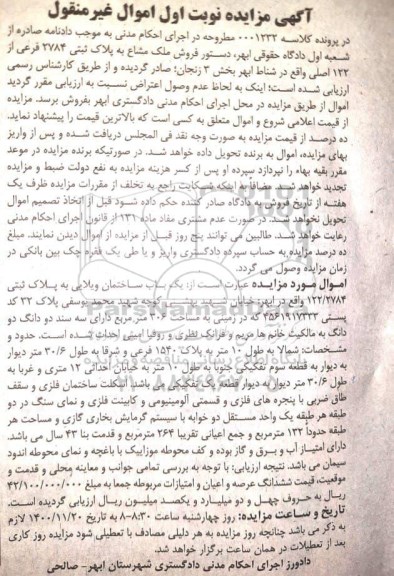 آگهی مزایده نوبت اول اموال غیرمنقول
در پرونده کلاسه ۰۰۰۱۲۳۲ مطروحه در اجرای احکام مدنی به موجب دادنامه صادره از
شعبه اول دادگاه حقوقی ابهر، دستور فروش ملک مشاع به پلاک ثبتی ۲۷۸۴ فرعی از
۱۲۲ اصلی واقع در شناط ابهر بخش ۳ زنجان؛ صادر گردیده و از طریق کارشناس رسمی
ارزیابی شده است؛ اینک به لحاظ عدم وصول اعتراض نسبت به ارزیابی مقرر گردید
اموال از طریق مزایده در محل اجرای احکام مدنی دادگستری ابهر بفروش برسد. مزایده
از قیمت اعلامی شروع و اموال متعلق به کسی است که بالاترین قیمت را پیشنهاد نماید.
ده درصد از قیمت مزایده به صورت وجه نقد فی المجلس دریافت شده و پس از واریز
بهای مزایده، اموال به برنده تحویل داده خواهد شد. در صورتیکه برنده مزایده در موعد
مقرر بقیه بهاء را نپردازد سپرده او پس از کسر هزینه مزایده به نفع دولت ضبط و مزایده
تجدید خواهد شد. مضافا به اینکه شکایت راجع به تخلف از مقررات مزایده ظرف یک
هفته از تاریخ فروش به دادگاه صادر کننده حکم داده شود قبل از اتخاذ تصمیم اموال
تحویل نخواهد شد. در صورت عدم مشتری مفاد ماده ۱۳۱ از قانون اجرای احکام مدنی
رعایت خواهد شد. طالبین می توانند پنج روز قبل از مزایده از اموال دیدن نمایند. مبلغ
ده درصد مزایده به حساب سپرده دادگستری واریز و یا طی یک فقره چک بین بانکی در
زمان مزایده وصول می گردد.
اموال مورد مزایده عبارت است از: یک باب ساختمان ویلایی به پلاک ثبتی
۱۲۲/۲۷۸۴ واقع در ابهر، خیابان شهید بهشتی کوچه شهید محمد یوسفی پلاک ۲۲ کد
پستی ۴۵۶۱۹۱۷۴۳۳ که در زمینی به مساحت ۳۰۶ متر مربع دارای سه سند دو دانگ دو
دانگ به مالکیت خانم ها مریم و فرانک نظری و روفیا امینی احداث شده است. حدود و
مشخصات: شمالا به طول ۱۰ متر به پلاک ۱۵۴۰ فرعی و شرقا به طول ۳۰/۶ متر دیوار
به دیوار به قطعه سوم تفکیکی جنوبا به طول ۱۰ متر به خیابان احداثی ۱۲ متری و غربا به
طول ۳۰/۶ متر دیوار به دیوار قطعه یک تفکیکی می باشد. اسکلت ساختمان فلزی و سقف
طاق ضربی با پنجره های فلزی و قسمتی آلومینیومی و کابینت فلزی و نمای سنگ در دو
طبقه هر طبقه یک واحد مستقل دو خوابه با سیستم گرمایش بخاری گازی و مساحت هر
طبقه حدودا ۱۳۲ مترمربع و جمع اعیانی تقریبا ۲۶۴ مترمربع و قدمت بنا ۴۳ سال می باشد.
دارای امتیاز آب و برق و گاز بوده و کف محوطه موزاییک با باغچه و نمای محوطه اندود
سیمان می باشد. نتیجه ارزیابی: با توجه به بررسی تمامی جوانب و معاینه محلی و قدمت و
موقعیت، قیمت ششدانگ عرصه و اعیان و امتیازات مربوطه جمعا به مبلغ ۴۲/۱۰۰/۰۰۰/۰۰۰
ریال به حروف چهل و دو میلیارد و یکصد میلیون ریال ارزیابی گردیده است.
تاریخ و ساعت مزایده: روز چهارشنبه ساعت ۸:۳۰-۸ به تاریخ ۱۴۰۰/۱۱/۲۰ لازم
به ذکر می باشد چنانچه روز مزایده به هر دلیلی مصادف با تعطیلی شود مزایده روز کاری
بعد از تعطیلات در همان ساعت برگزار خواهد شد.
دادورز اجرای احکام مدنی دادگستری شهرستان ابهر- صالحی